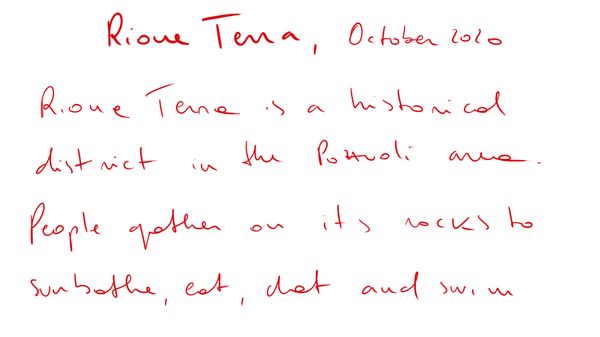 Rione Terra, October 2020
Rione Terra is a historical
district in the Pozzuoli area.
People gather on its rocks to
sunbathe, eat, chat and swim